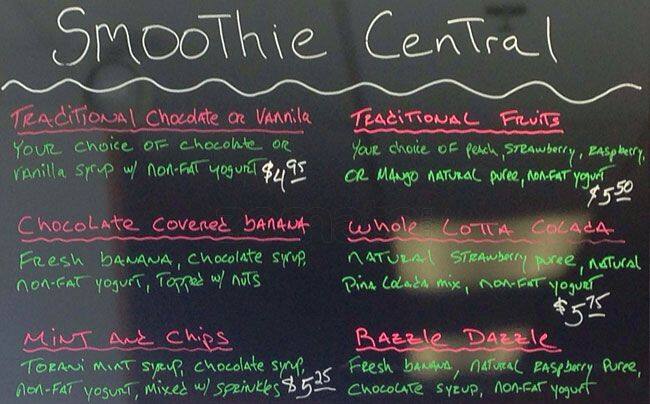 Smoothie Central
Traditional Chocolate or Vannila
Your choice of chocolate or
vanilla syrup w/ non-fat yogurt $4.95
Chocolate Covered Banana
Fresh banana, chocolate syrup,
non-fat yogurt, topped w/ nuts
Mint and Chips
Torani mint syrup, chocolate syrup,
non-fat yogurt, mixed w/ sprinkles $5.25
Traditional Fruits
Your choice of peach, strawberry, raspberry,
or mango natural puree, non-fat yogurt
$5.50
Whole Lotta Colada
Natural strawberry puree, natural
pina colada mix, non-fat yogurt
$5.75
Razzle Dazzle
Fresh banana, natural raspberry puree,
chocolate syrup, non-fat yogurt